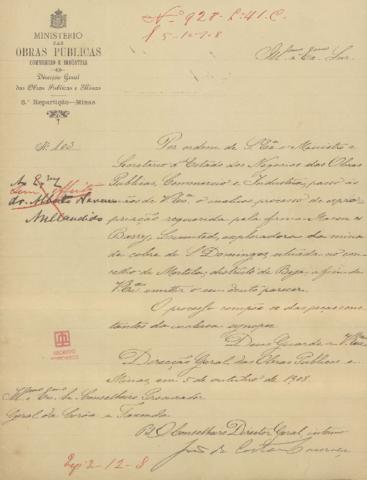 Nº 928-L:41.C.
5-10-8
MINISTERIO
DAS
OBRAS PUBLICAS
COMMERCIO E INDUSTRIA
Direcção Geral
das Obras Publicas e Minas
3.ª Repartição - Minas
Illmo e Exmo Snr.
Nº 103
Por ordem de S. Exa o Ministro e
Secretario d'Estado dos Negocios das Obras
Publicas, Commercio e Industria, passo ás
mãos de V. Exa o incluso processo de expro-
priação requerida pela firma Mason &
Barry, Limited, exploradora da mina
de cobre de S. Domingos, situada no con-
celho de Mertola, districto de Beja a fim de
V. Exa emittir o seu douto parecer.
O processo compõe-se das peças cons-
tantes da inclusa synopse.
Deus Guarde a V. Exa
Direcção Geral das Obras Publicas e
Minas, em 5 de outubro de 1908.
Ao Exmo
Sem effeito
dr. Alberto
Illmo e Exmo Snr. Conselheiro Procurador
Geral da Corôa e Fazenda
O Conselheiro Director Geral interino
João da Costa
2-12-8